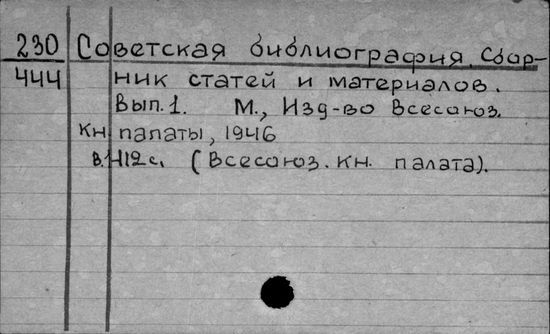 230 Советская библиография. Сбор-
444 ник статей и материалов.
Вып. 1. М., Изд-во Всесоюз.
Кн. палаты, 1946
412 с. (Всесоюз. кн. палата).